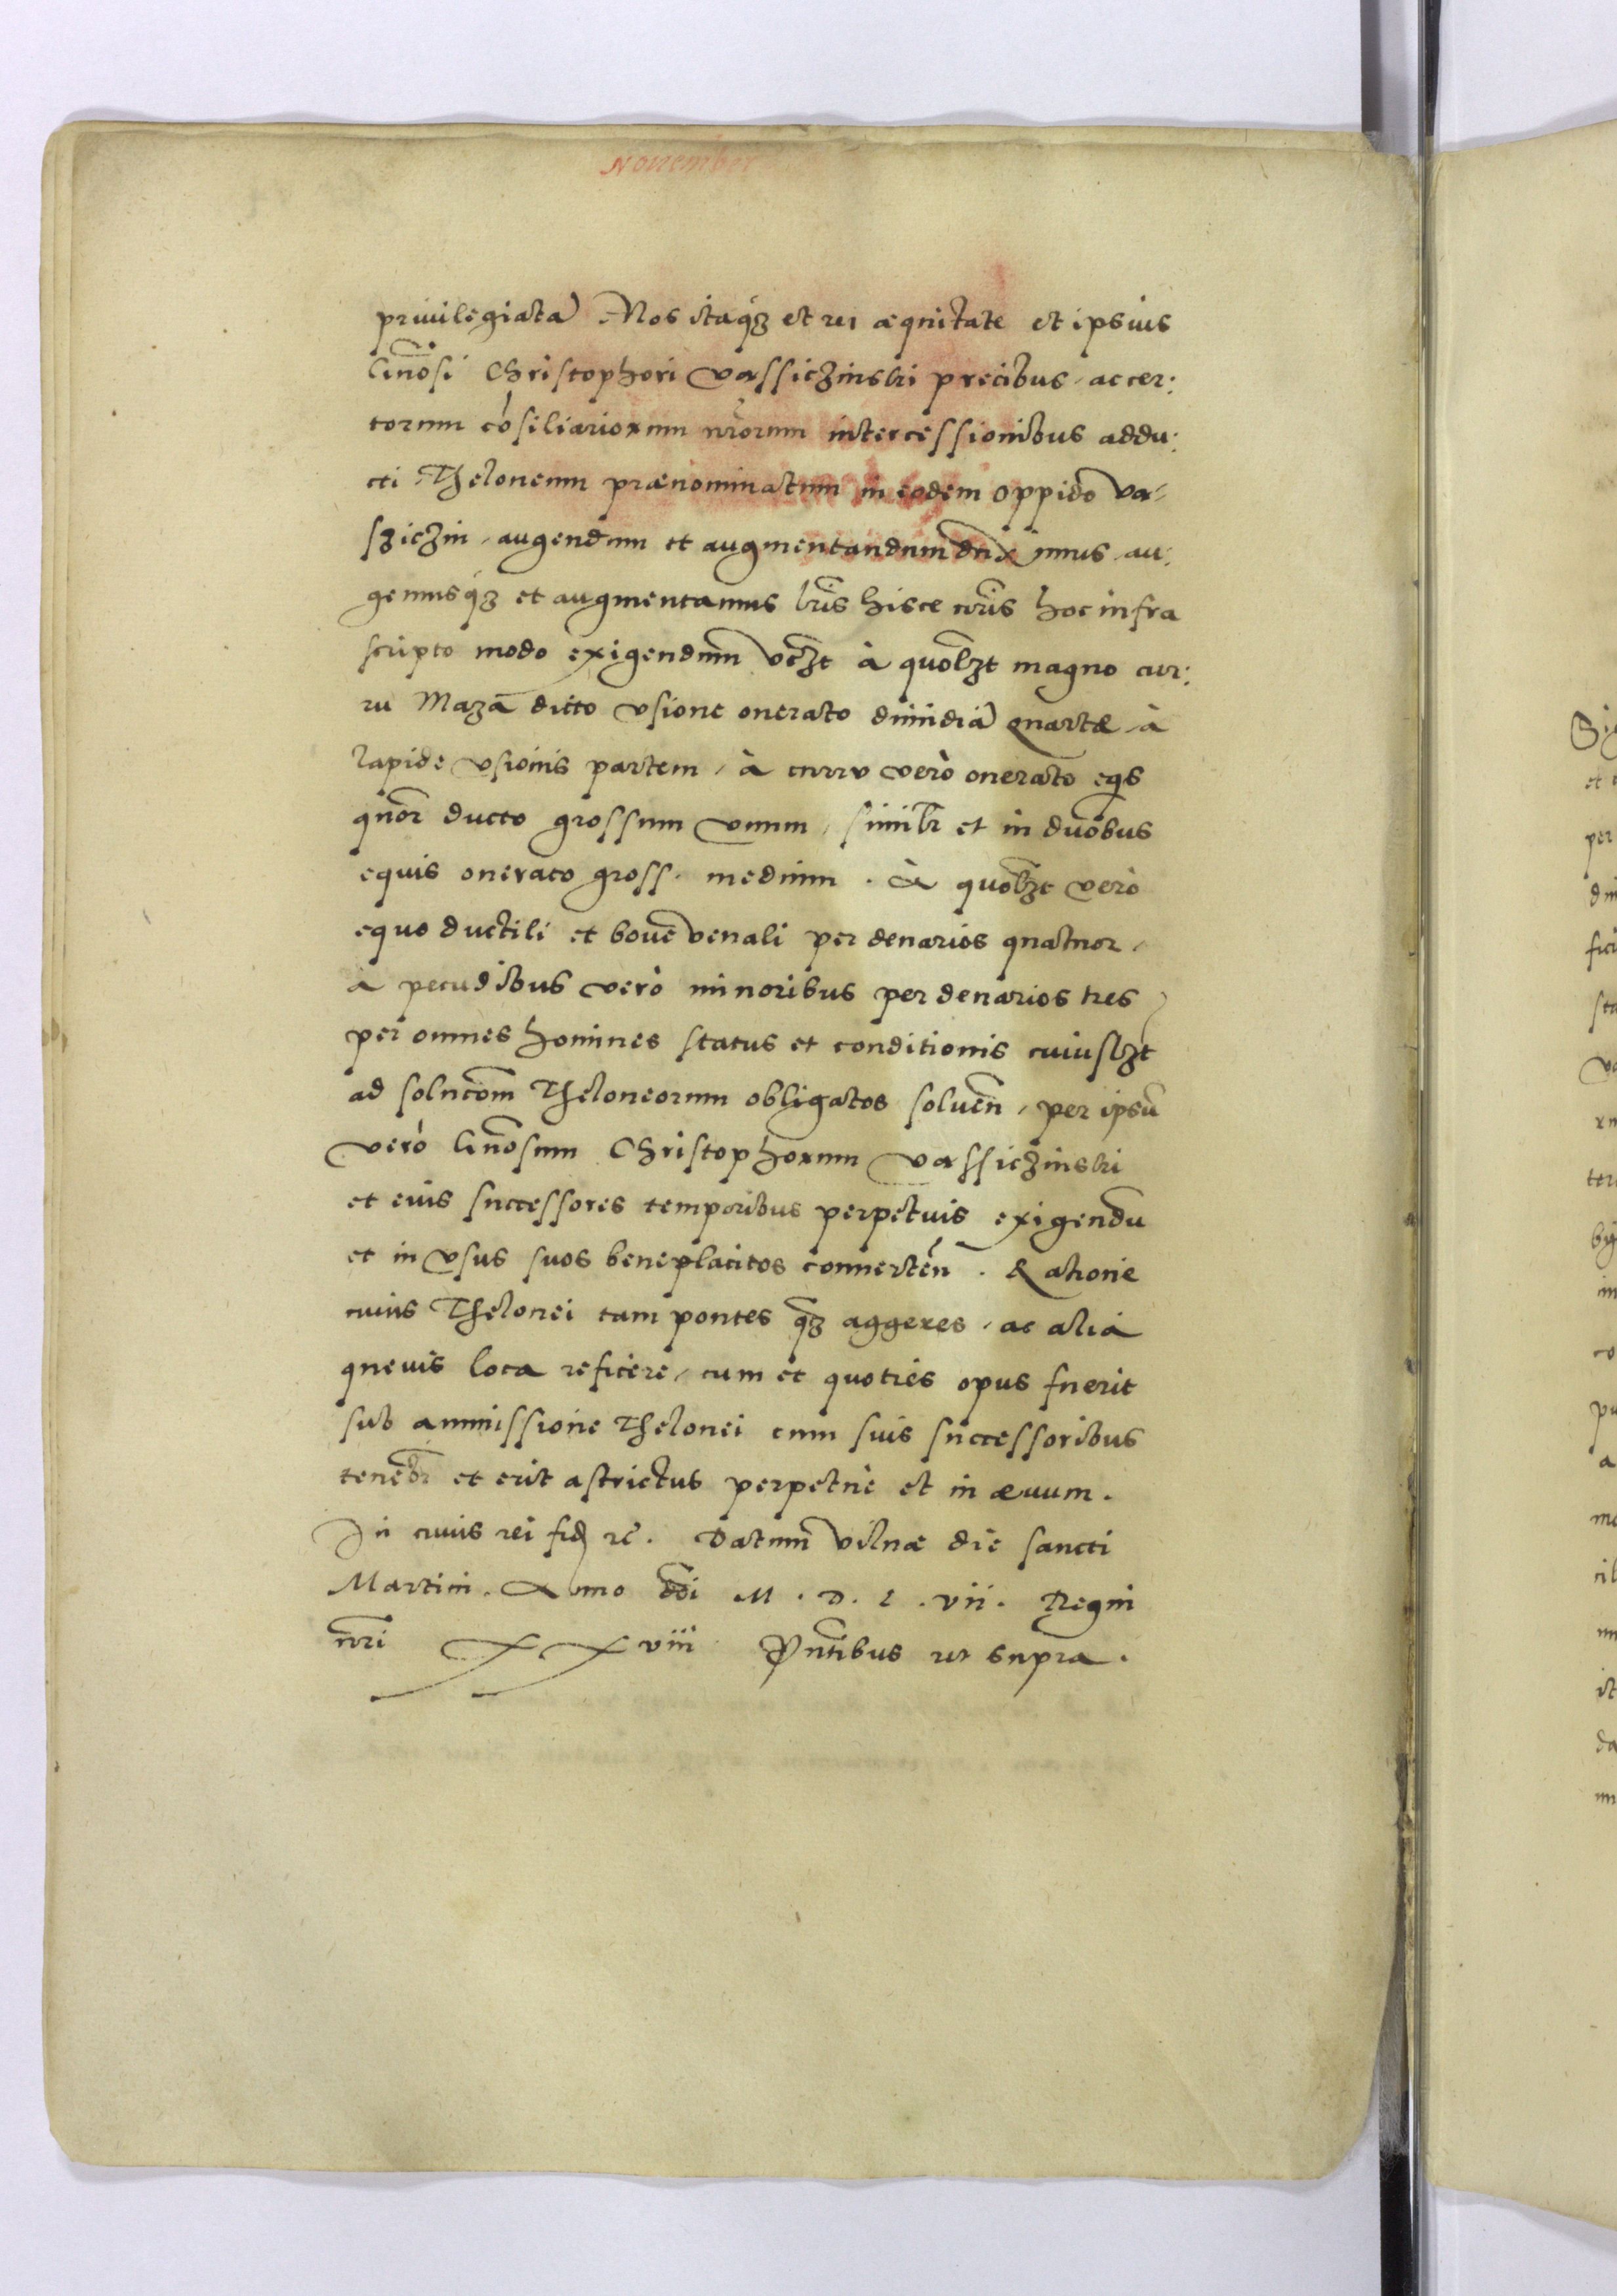 November
priuilegiata) Nos itaq3 et rei æquitate et ipsius
Gnosi Christophori Vassiczinski precibus, ac cer:
torum cosiliariorum nrorum intercessionibus addu:
cti Theloneum prænominatum in eodem oppido Va=
ssiczin, augendum et augmentandum dux imus, au:
gemusq3 et augmentamus lris hisce nris hoc infra
scripto modo exigendum vc3t à quol3t magno cur:
ru Maza dicto vsione onerato dimidia quartæ, à
lapide vsionis partem, à curru verò onerato eqs
quor ducto grossum vnum, similr et in duobus
equis onerato gross. medium. A quol3t verò
equo ductili et boue venali per denarios quatuor,
à pecudibus verò minoribus per denarios tres,
per omnes homines status et conditionis cuiusl3t
ad solucom Theloneorum obligatos soluen, per ipsu
verò Gnosum Christophorum Vassiczinski
et eius successores temporibus perpetuis exigendu
et in vsus suos beneplacitos conuerten. Ratione
cuius Thelonei tam pontes q3 aggeres, ac alia
queuis loca reficere, cum et quoties opus fuerit
sub ammissione Thelonei cum suis successoribus
tenebr et erit astrictus perpetuè et in æuum.
In cuius rei fid rc. Datum Vilnæ die sancti
Martini. Anno Dni M. D. L. vii. Regni
nri XXviii Pntibus ut supra.